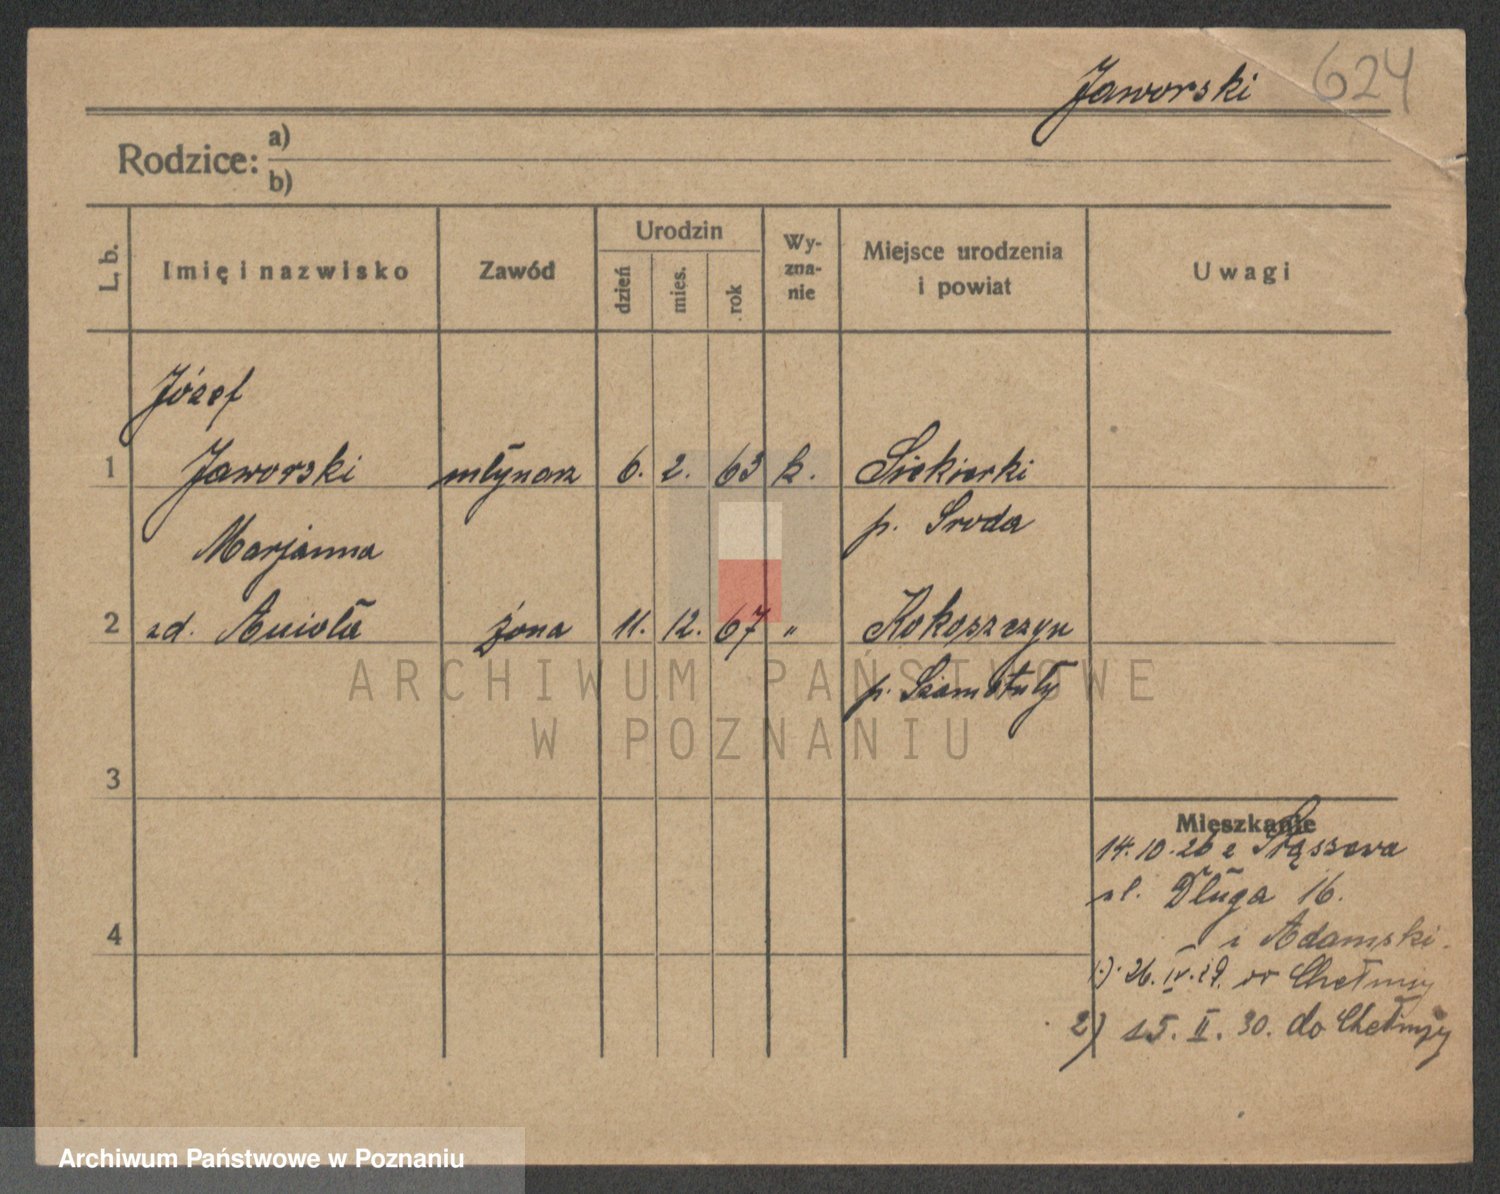 Jaworski 624
Rodzice: a)
b)
L. b. Imię i nazwisko Zawód Urodzin dzień mies. rok Wyzna-nie Miejsce urodzenia i powiat Uwagi
Józef
1 Jaworski młynarz 6. 2. 63 k. Siekierki
p. Środa
Marjanna
2 zd. Anioła żona 11. 12. 67 " Kokoszczyn
p. Szamotuły
3
Mieszkanie
14.10.26 z
ul. Długa 16.
4
i Adamski.
1) 26.IV.29. do Chełmży
2) 15. II. 30. do Chełmży
ARCHIWUM PAŃSTWOWE
W POZNANIU
Archiwum Państwowe w Poznaniu